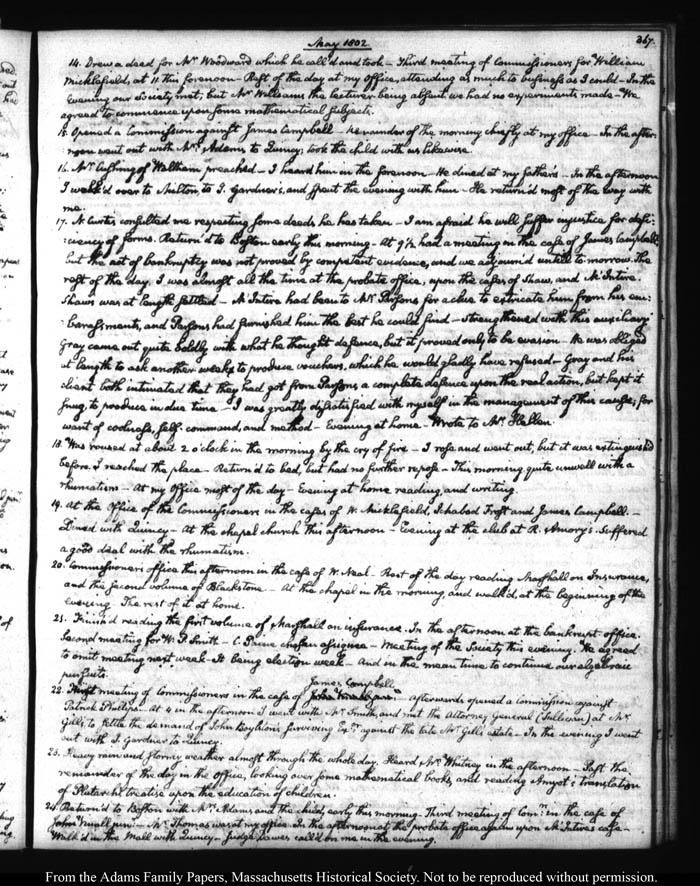 May 1802.
367.
14. Drew a deed for Mr Woodward which he call'd and took — Third meeting of Commissioners for William
Micklefield, at 11 this forenoon — Rest of the day at my Office, attending as much to business as I could — In the
Evening our Society met; but Mr Williams the lecturer being absent we had no experiments made — We
agreed to commence upon some mathematical subjects.
15. Opened a Commission against James Campbell — remainder of the morning chiefly at my office — In the after-
noon went out with Mrs Adams, to Quincy; took the child with us likewise.
16. Mr Cushing of Waltham preached — I heard him in the forenoon — He dined at my father's — In the afternoon
I walk'd over to Milton, to I. Gardner's, and spent the evening with him — He return'd most of the way with
me.
17. N. Curtis, consulted me respecting some deeds he has taken — I am afraid he will suffer injustice for defi-
:ciency of forms. Return'd to Boston early this morning — At 9½ had a meeting in the case of James Campbell;
but the act of bankruptcy was not proved by competent evidence, and we adjourn'd untill to morrow. The
rest of the day, I was almost all the time at the probate office, upon the cases of Shaw, and McIntire.
Shaws was at length settled — McIntire had been to Mr Parsons for a clue to extricate him from his em:
:barassments, and Parsons had furnished him the best he could find — Strengthened with this auxiliary
Gray came out quite boldly with what he thought defence, but it proved only to be evasion — He was obliged
at length to ask another week to produce vouchers, which he would gladly have refused — Gray and his
client both intimated that they had got from Parsons, a complete defence upon the real action, but kept it
snug, to produce in due time — I was greatly dissatisfied with myself in the management of this cause; for
want of coolness, self-command, and method — Evening at home — Wrote to Mr Hellen.
18. Was roused at about 2 o'clock in the morning by the cry of fire — I rose and went out, but it was extinguish'd
before I reached the place — Return'd to bed, but had no further repose — This morning quite unwell with a
rhumatism — At my Office most of the day — Evening at home reading, and writing.
19. At the Office of the Commissioners in the cases of W. Micklefield, Ichabod Frost and James Campbell. —
Dined with Quincy — At the chapel church this afternoon — Evening at the club at R. Amory's. Suffered
a good deal with the rhumatism.
20. Commissioners office this afternoon in the case of W. Neal — Rest of the day reading Marshall on Insurance,
and the second volume of Blackstone — At the chapel in the morning, and walk'd at the beginning of the
evening. The rest of it at home.
21. Finish'd reading the first volume of Marshall on insurance. In the afternoon at the bankrupt office.
Second meeting for W. P. Smith — C. Paine chosen assignee — Meeting of the Society this evening. We agreed
to omit meeting next week — It being election week — And in the mean time to continue our algebraic
pursuits.
James Campbell
22. Third meeting of Commissioners in the case of — afterwards opened a commission against
Patrick Phelips. At 4 in the afternoon I went with Mr Smith, and met the Attorney General (Sullivan) at Mr
Gill's, to settle the demand of John Boylston's surviving Exr. against the late Mr Gill's estate — In the evening I went
out with I. Gardner to Quincy.
23. Heavy rain and stormy weather almost through the whole day. Heard Mr Whitney in the afternoon — Past the
remainder of the day in the office, looking over some mathematical books, and reading Amyot's translation
of Plutarch's treatise upon the education of children.
24. Return'd to Boston with Mrs Adams and the child, early this morning. Third meeting of Comrs. in the case of
Mr Thomas was at my office. In the afternoon at the probate office again upon McIntire's case —
Walk'd in the Mall with Quincy — Judge Dawes call'd on me in the evening.
From the Adams Family Papers, Massachusetts Historical Society. Not to be reproduced without permission.